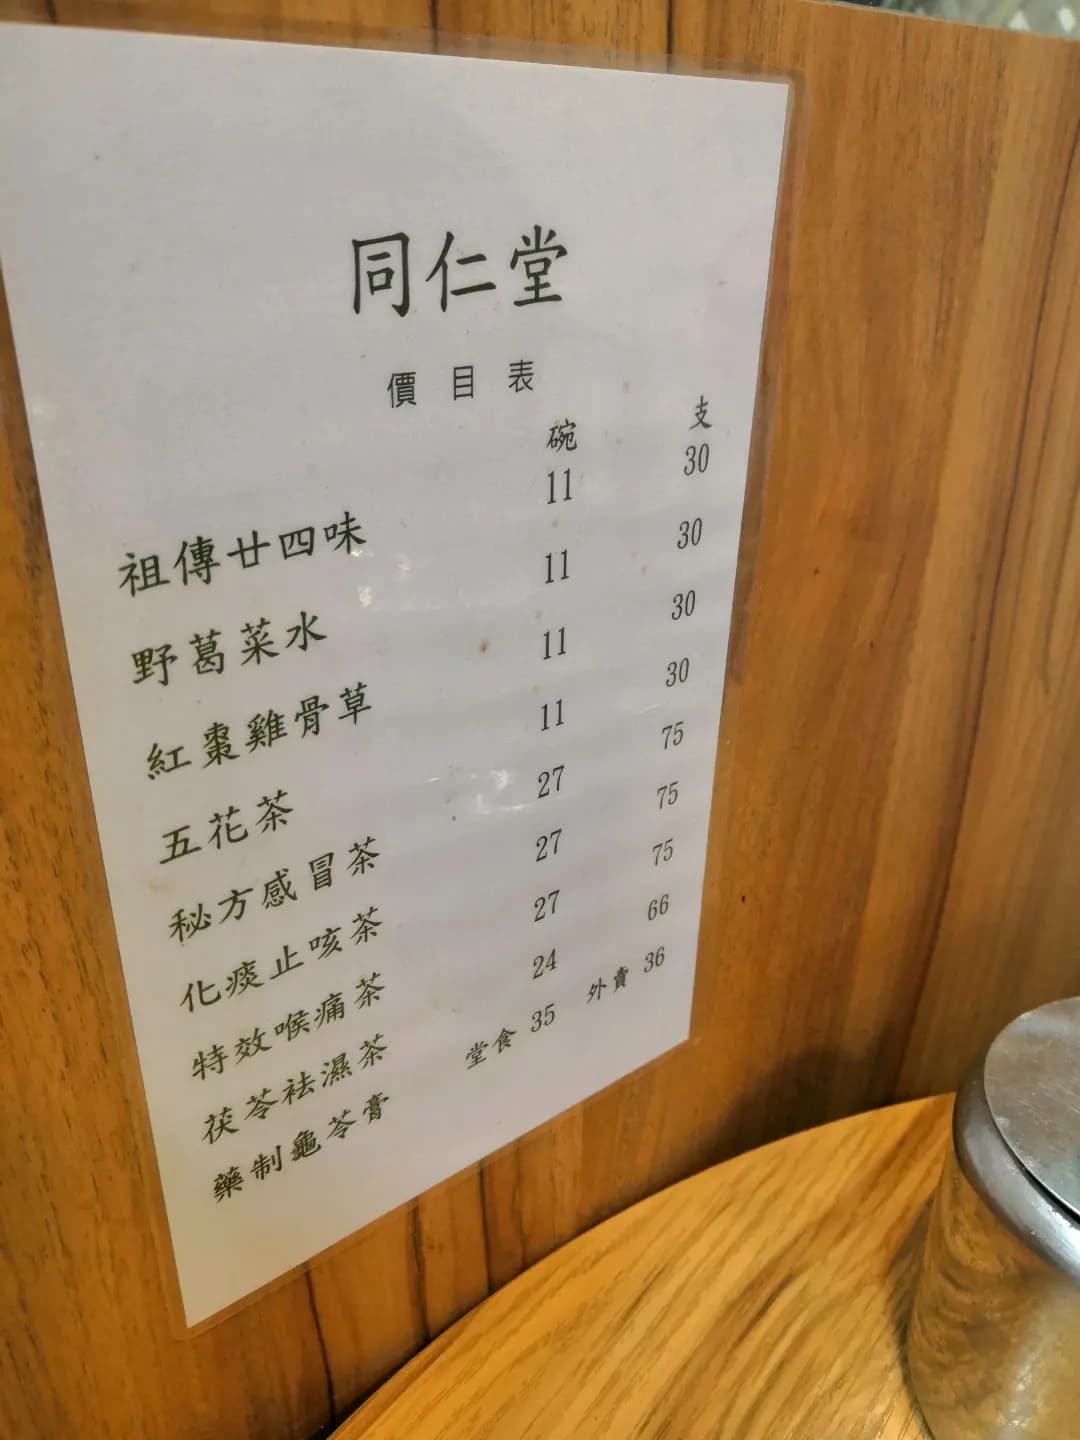 同仁堂
價目表
碗 支
祖傳廿四味 11 30
野葛菜水 11 30
紅棗雞骨草 11 30
五花茶 11 30
秘方感冒茶 27 75
化痰止咳茶 27 75
特效喉痛茶 27 75
茯苓祛濕茶 24 66
藥制龜苓膏 堂食 35 外賣 36